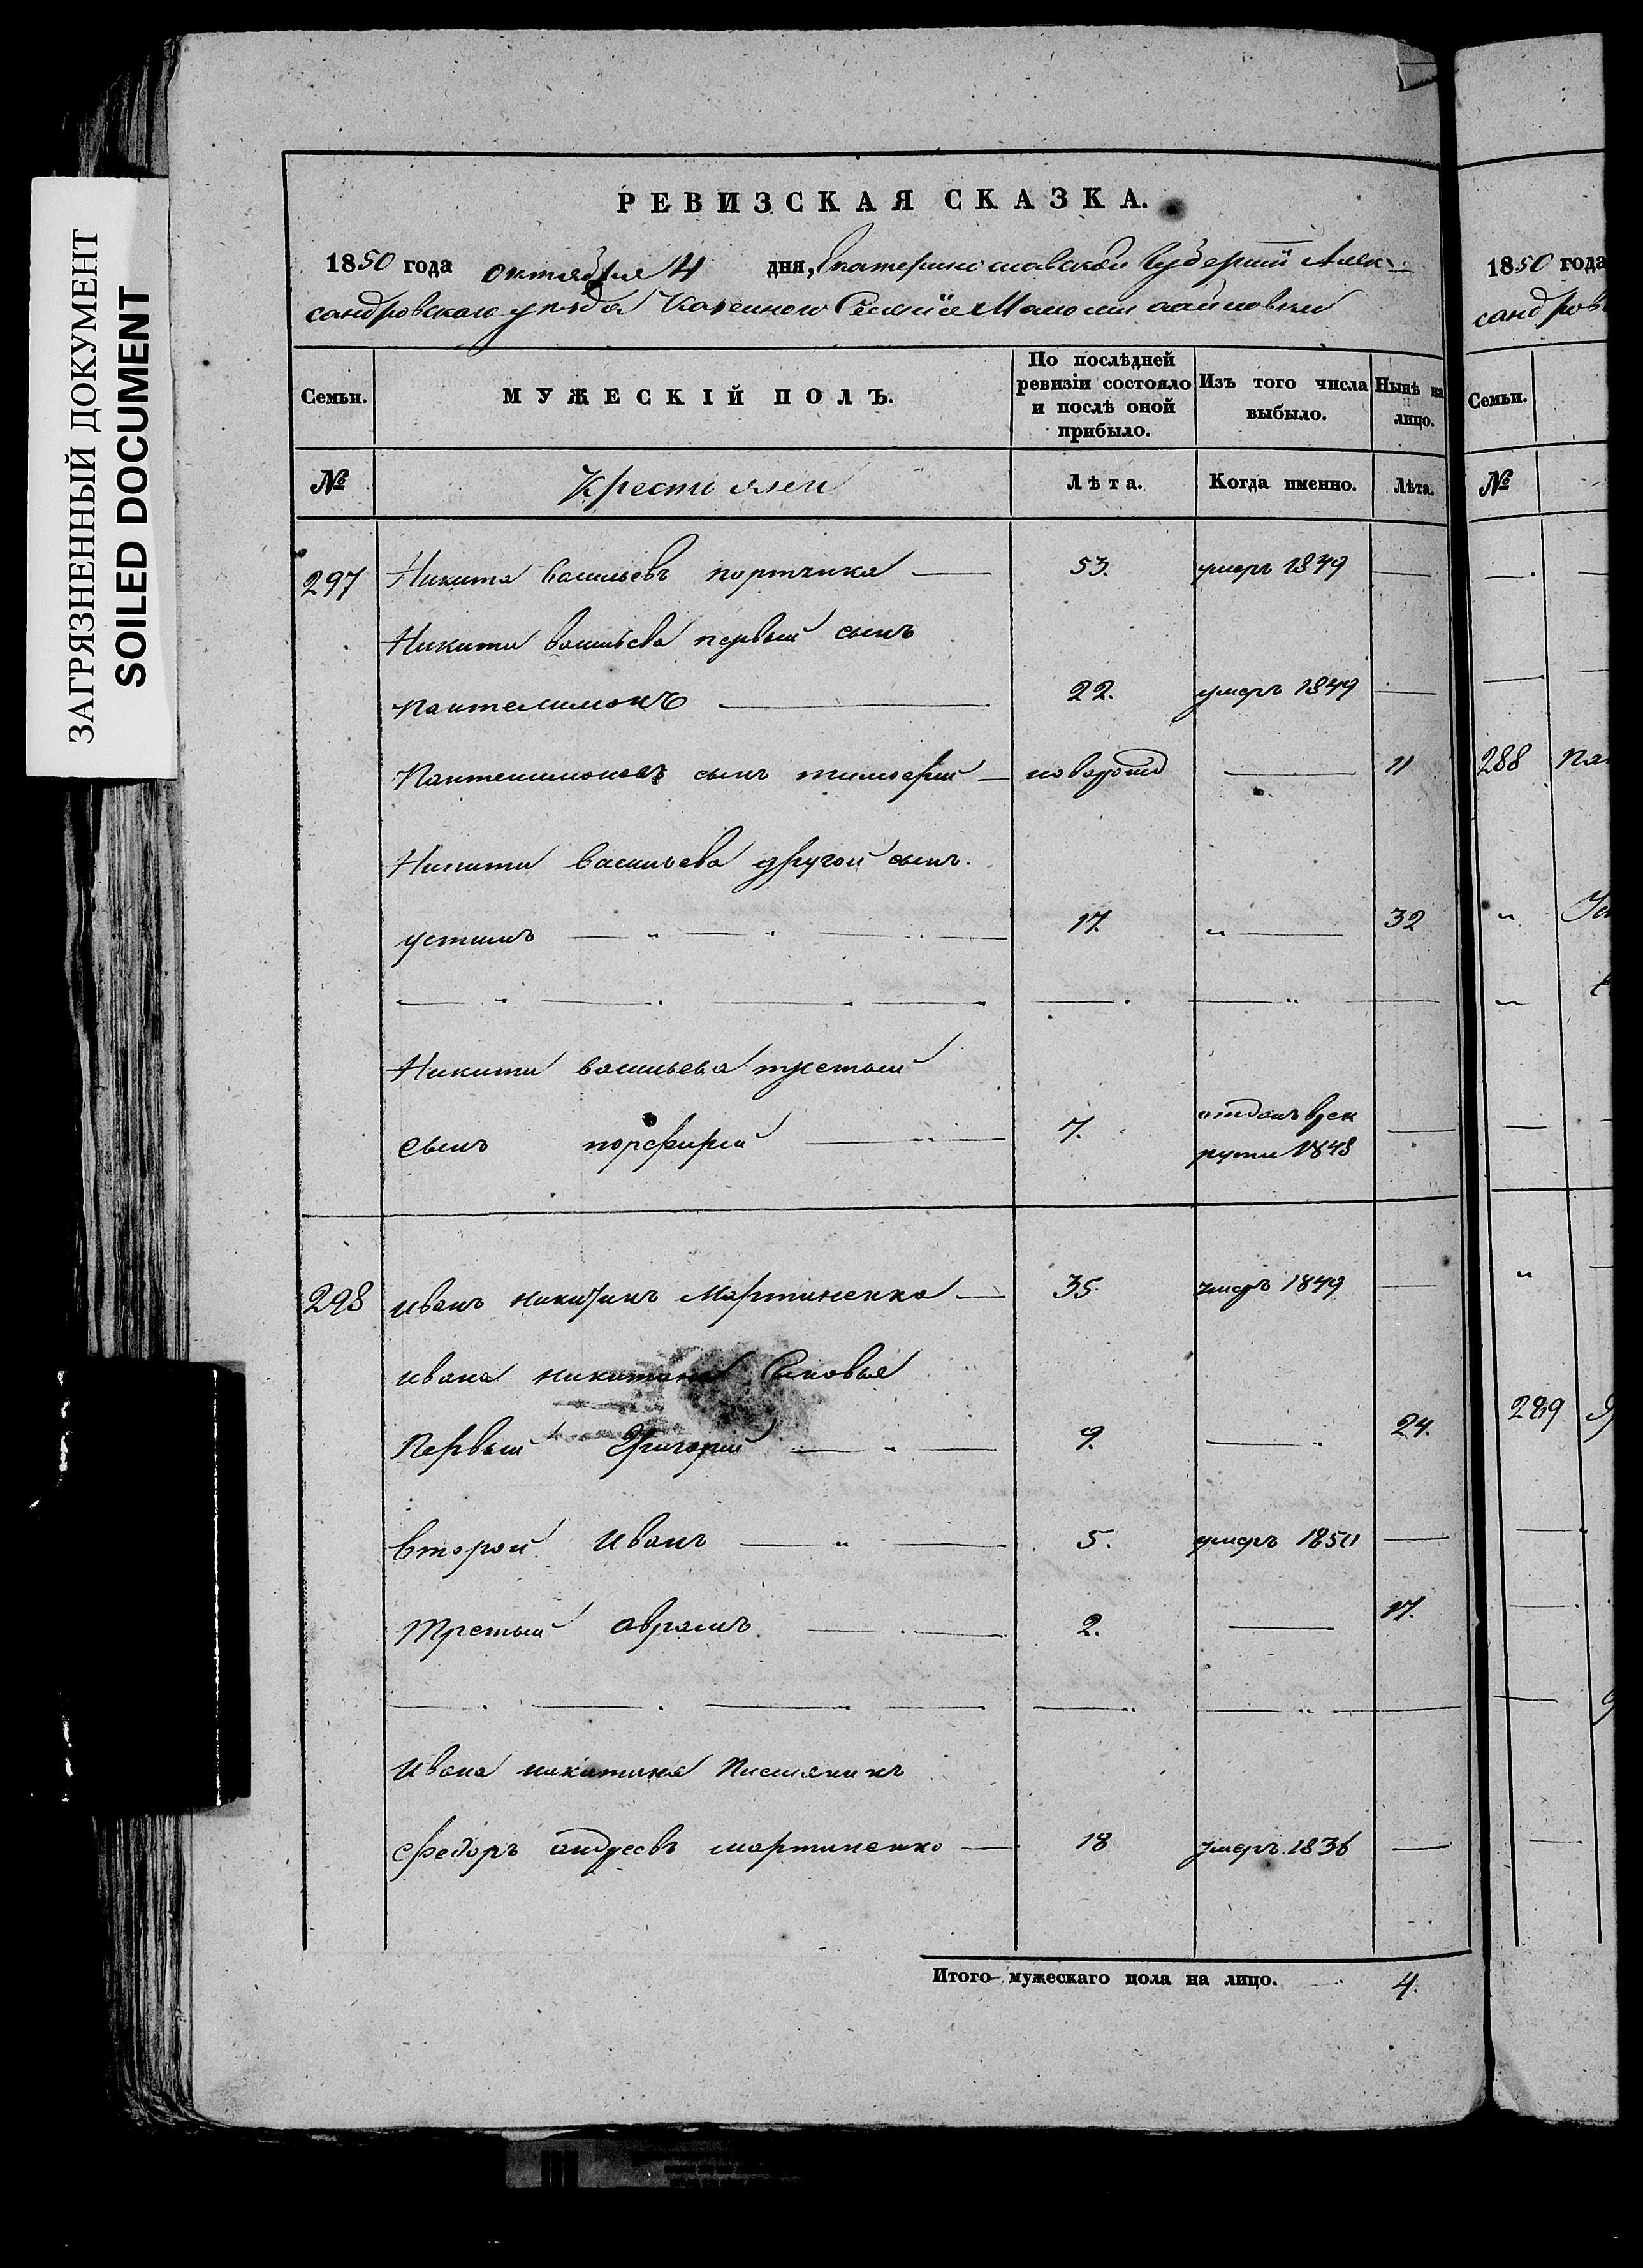 ЗАГРЯЗНЕННЫЙ ДОКУМЕНТ
SOILED DOCUMENT
РЕВИЗСКАЯ СКАЗКА.
1850 года октября 4 дня, Екатеринославской Губернии Алек-
сандровского уезда Казенного Селения Маломихайловки
Семьи.
МУЖЕСКІЙ ПОЛЪ.
По послѣдней ревизіи состояло и послѣ оной прибыло.
Изъ того числа выбыло.
Нынѣ на лицо.
№
Крестьяне
Лѣта.
Когда именно.
Лѣта.
297 Никита Васильевъ портянка 53. умеръ 1849
Никиты васильева первый сынъ
Пантелимонъ 22. умеръ 1849
Пантелимоновъ сынъ тимофей новорожд 11
Никиты Васильева другой сынъ.
устинъ 17. 32
Никиты васильева третий
сынъ порфирий 7. отданъ врек
руты 1848
298 иванъ никитинъ Мартиненко 35. умеръ 1849
ивана никитина Сыновья
Первый Григорий 9. 24.
второй иванъ 5. умеръ 1850
Третий аврамъ 2. 17.
Ивана никитина Племяникъ
Федоръ андреевъ мартиненко 18 умеръ 1836
Итого мужескаго пола на лицо. 4.
1850 года
сандров
Семьи.
№
288
289